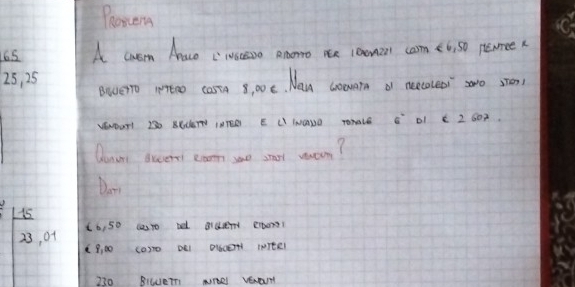 PROBLEMA
AL CINEMA APOLLO L'INGRESSO RIDOTTO PER I RAGAZZI COSTA € 6,50 MENTRE IL
BIGLIETTO INTERO COSTA 8,00 €. NELLA GIORNATA DI MERCOLEDI' SONO STATI
VENDUTI 230 BIGLIETTI INTERI E L'INCASSO TOTALE E' DI € 2 602.
QUANTI BIGLIETTI RIDOTTI SONO STATI VENDUTI?
DATI
€ 6,50 COSTO DEI BIGLIETTI RIDOTTI
€ 8,00 COSTO DEI BIGLIETTI INTERI
230 BIGLIETTI INTERI VENDUTI
65
25,25
15
23,01